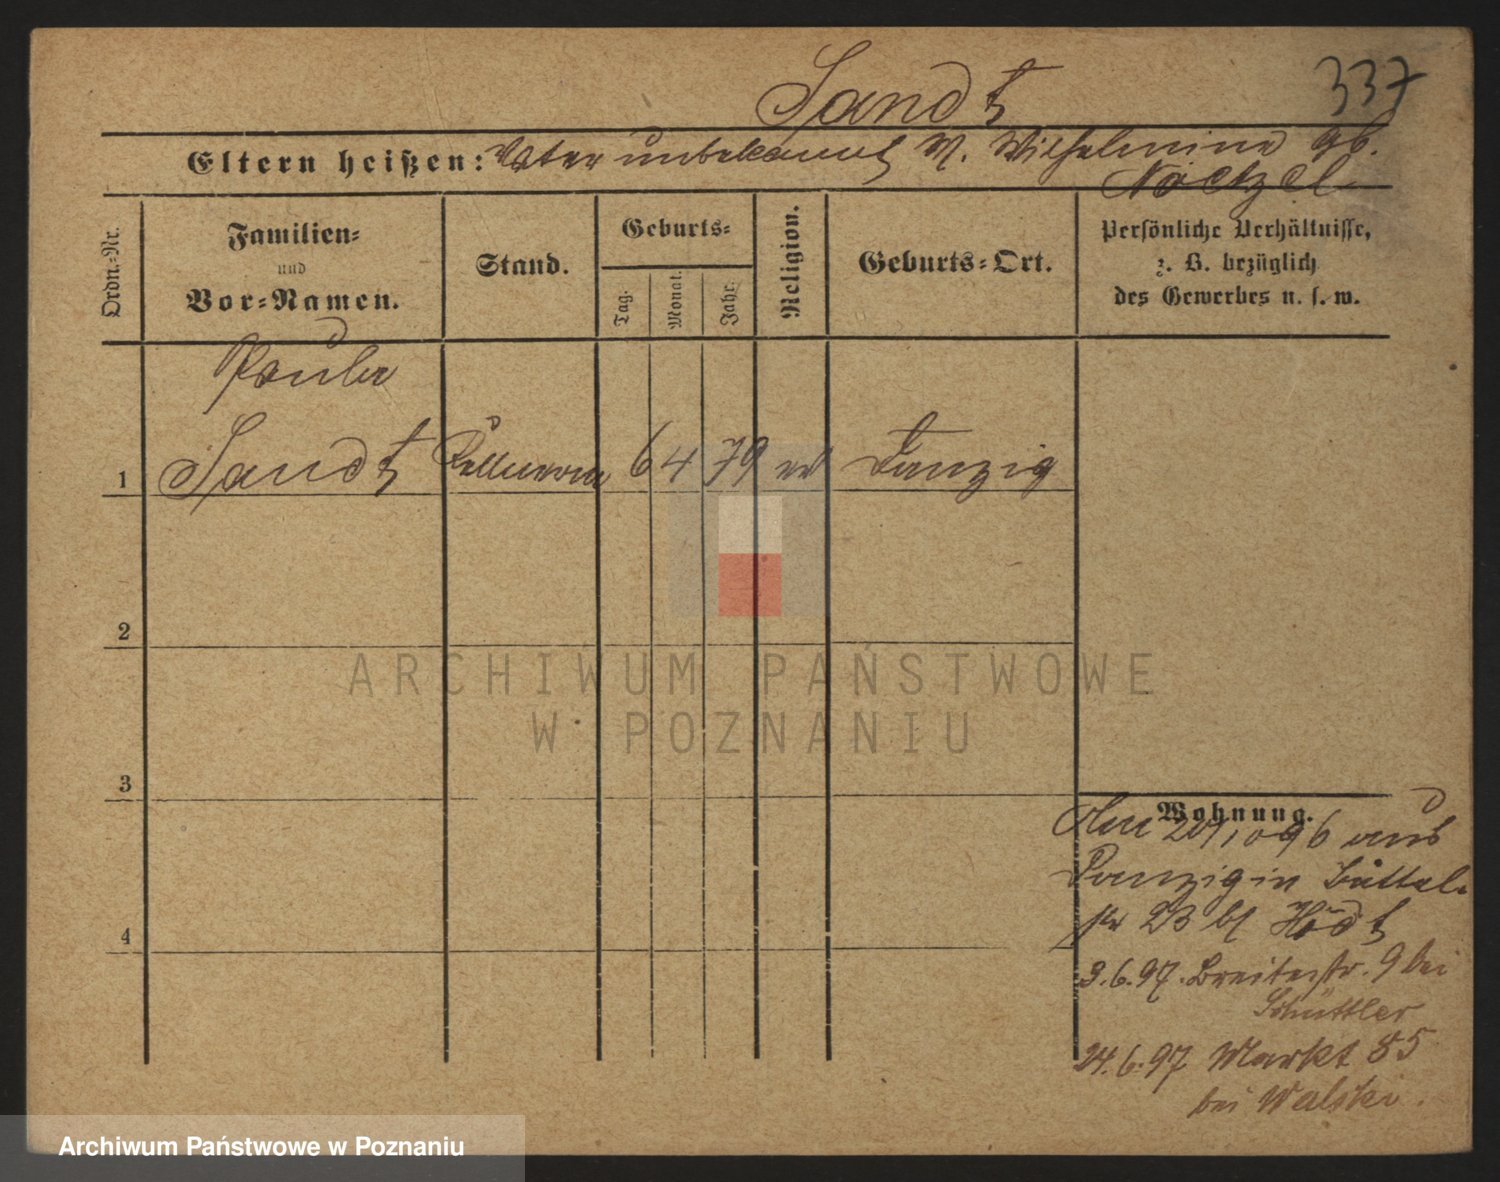 Sandt 337
Eltern heißen: Vater unbekannt M. Wilhelmine gb.
Noetzel
Ordn.=Nr.
Familien=
und
Vor=Namen.
Stand.
Geburts=
Tag.
Monat.
Jahr.
Religion.
Geburts=Ort.
Persönliche Verhältnisse,
z. B. bezüglich
des Gewerbes u. s. w.
Paula
1 Sandt Kellnerin 6 4 79 ev Danzig
2
3
4
Wohnung.
96 aus
Danzig in Büttel
str 23 bei
3.6.97. Breitestr. 9 bei
Schüttler
24.6.97 Markt 85
bei Walski.
ARCHIWUM PAŃSTWOWE
W POZNANIU
Archiwum Państwowe w Poznaniu